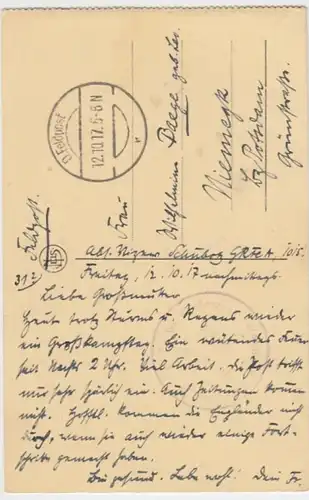 Feldpost.
D. Feldpost
12.10.17. 5-6 N
Frau
Wilhelmine Paege geb. Ler.
Niemegk
Bz Potsdam
Grünstraße.
31?)
Abs. Vizew Schubotz
Freitag, 12.10.17 nachmittags.
Liebe Großmutter,
Heute trotz Sturms u. Regens wieder
ein Großkampftag. Ein wütendes Feuer
seit Nachts 2 Uhr. Viel Arbeit. die Post trifft
nur sehr spärlich ein. Auch Zeitungen kommen
nicht. Hofftl. kommen die Engländer nicht
durch, wenn sie auch wieder einige Fort-
schritte gemacht haben.
Bin gesund. Lebe wohl! Dein Fr.